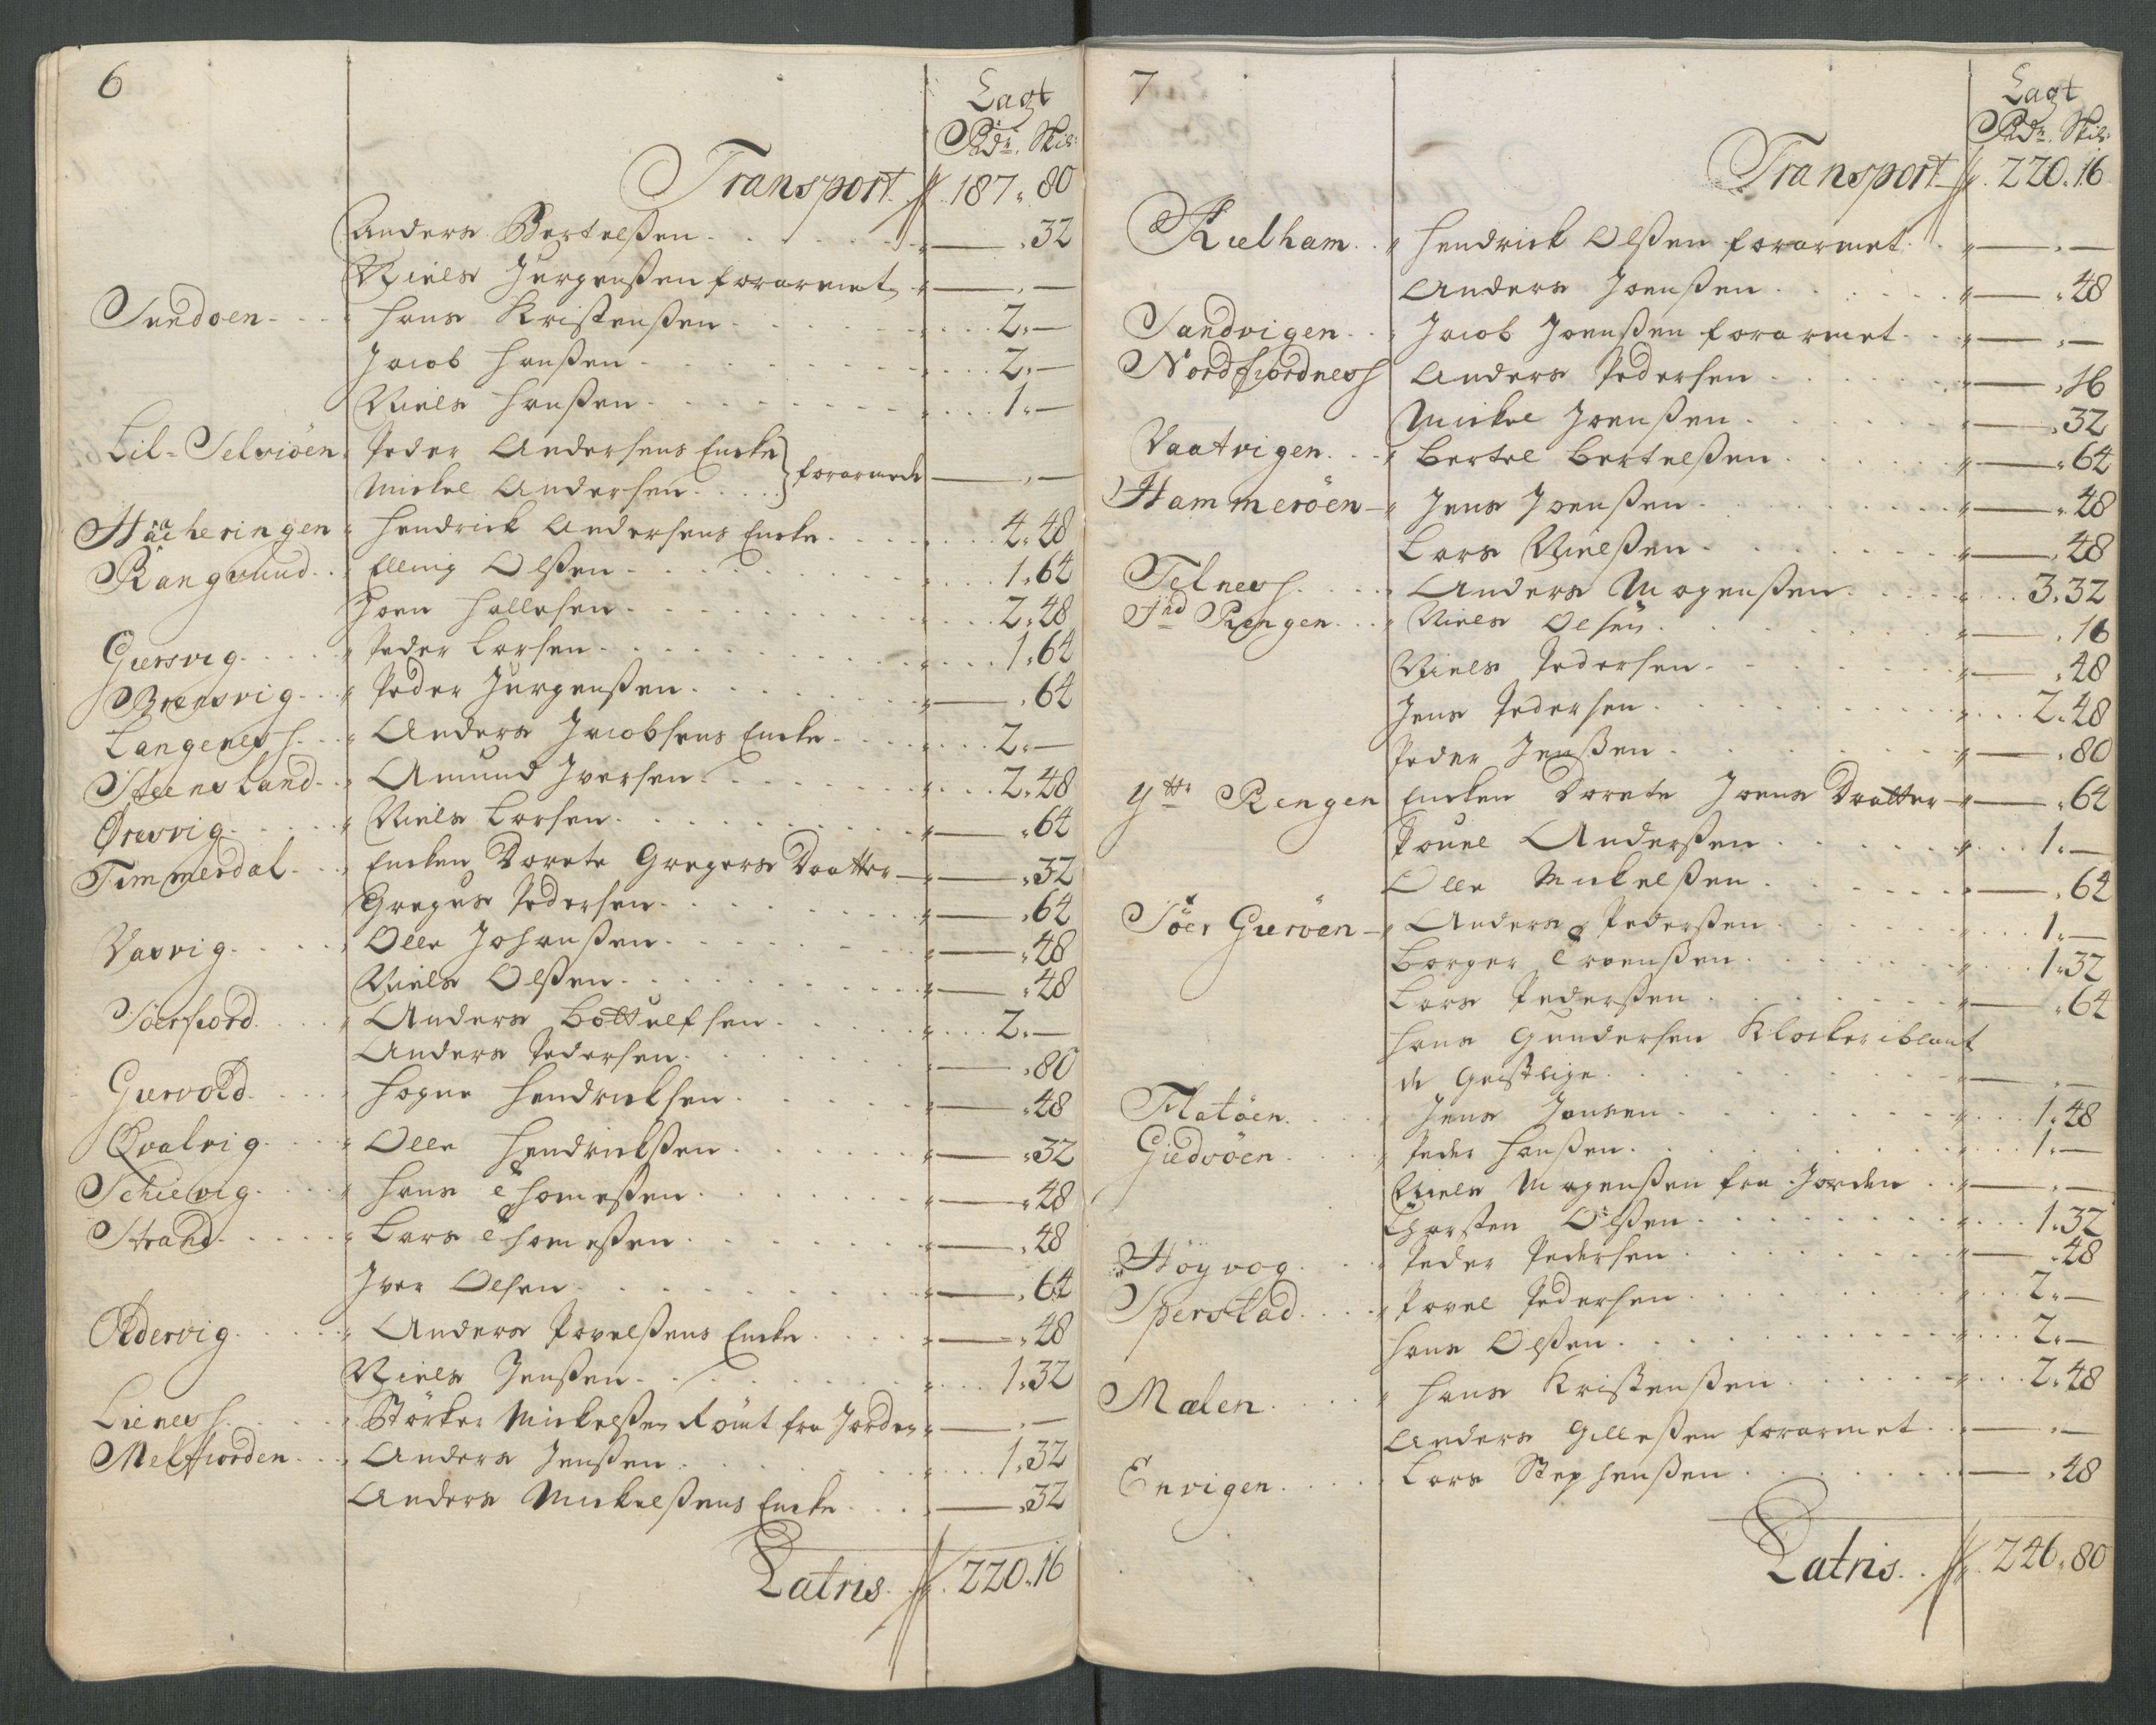 6
Lagt
Rdr. Skil:
Transport 187. 80
Anders Bertelßen 32
Niels Jurgenßen forarmet —
Sundoen Hans Kristenßen 2. —
Jacob Hanßen 2. —
Niels Hanßen 1. —
Lil-Selviöen Peder Andersens Encke
Mickel Andersen } forarmede —
Haacheringen Hendrick Andersens Encke 4. 48
Rangsund Elling Olßen 1. 64
Joen Hallesen 2. 48
Giersvig Peder Larsen 1. 64
Brensvig Peder Jurgenßen 64
Langenesh Anders Jacobsens Encke 2. —
Steensland Amund Iversen 2. 48
Øresvig Niels Larsen 64
Timmerdal Encken Dorete Gregers Daatter 32
Gregus Pedersen 64
Vasvig Olle Johanßen 48
Niels Olßen 48
Söerfiord Anders Bottulfsen 2. —
Anders Pedersen 80
Giervold Hogne Hendricksen 48
Qvalvig Olle Hendrickßen 32
Schievig Hans Thomeßen 48
Strand Lars Thomeßen 48
Iver Olsen 64
Oldervig Anders Povelßens Encke 48
Niels Jenßen 1. 32
Lienesh Störker Mickelßen Römt fra Jorden —
Melfiorden Anders Jenßen 1. 32
Anders Mickelßens Encke 32
Latris 220. 16
7
Lagt
Rdr. Skil:
Transport 220. 16
Kielham Hendrick Olßen forarmet —
Anders Joenßen 48
Sandvigen Jacob Joenßen forarmet —
Nordfiordnesh Anders Pedersen 16
Mickel Joenßen 32
Vaatvigen Bertel Bertelßen 64
Hammeröen Jens Joenßen 48
Lars Nielßen 48
Telnesh Anders Mogenßen 3. 32
Ind Rengen Niels Olsen 16
Niels Pedersen 48
Jens Pedersen 2. 48
Peder Jenßen 80
Yttr Rengen Encken Dorete Joens Daatter 64
Pouel Anderßen 1. —
Olle Mickelßen 64
Söer Gieröen Anders Pederßen 1. —
Borger Troenßen 1. 32
Lars Pederßen 64
Hans Gundersen Klocker iblant
de Geistlige —
Flatöen Jens Jansen 1. 48
Giedvöen Peder Hanßen 1. —
Niels Mogenßen fra Jorden —
Thorsten Olßen 1. 32
Höyvog Peder Pedersen 48
Sperstad Povel Pedersen 2. —
Hans Olßen 2. —
Mælen Hans Kristenßen 2. 48
Anders Gilleßen forarmet —
Envigen Lars Stephenßen 48
Latris 246. 80